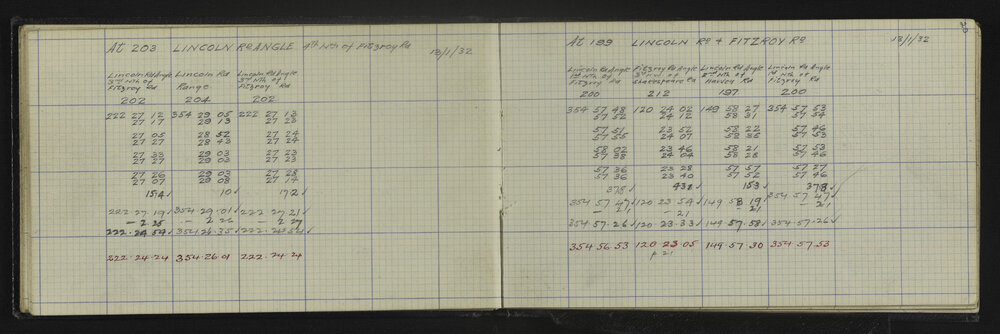 20
At 203 LINCOLN Rd ANGLE 4th Nth of Fitzroy Rd 13/1/32
Lincoln Rd Angle Lincoln Rd Lincoln Rd Angle
3rd Nth of Range 3rd Nth of
Fitzroy Rd Fitzroy Rd
202 204 202
222 27 12 354 29 05 222 27 13
27 17 29 13 27 23
27 05 28 52 27 24
27 27 28 43 27 24
27 33 29 03 27 23
27 27 29 03 27 23
27 26 29 03 27 28
27 07 29 08 27 14
154 10 172
222.27.19 354.29.01 222.27.21
- 2 25 - 2 26 - 2 27
222.24.54 354.26.35 222.24.54
222.24.24 354.26.01 222.24.24
At 199 LINCOLN Rd & FITZROY Rd 13/1/32
Lincoln Rd Angle Fitzroy Rd Angle Lincoln Rd Angle Lincoln Rd Angle
1st Nth of 3rd W of 2nd Nth of 1st Nth of
Fitzroy Rd Shakespeare Rd Harvey Rd Fitzroy Rd
200 212 197 200
354 57 48 120 24 02 149 58 27 354 57 53
57 52 24 12 58 31 57 54
57 51 23 52 58 22 57 46
57 55 24 07 58 35 57 53
58 02 23 46 58 21 57 53
57 38 24 04 58 28 57 46
57 36 23 28 57 57 57 27
57 36 23 40 57 52 57 46
378 431 153 378
354 57 47 120 23 54 149 58 19 354.57.47
- 21 - 21 21 - 21
354.57.26 120.23.33 149.57.58 354.57.26
354.56.53 120.23.05 149.57.30 354.57.53
p 21